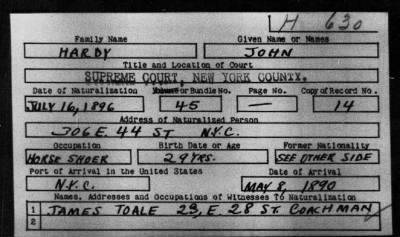 H 630
Family Name Given Name or Names
HARDY JOHN
Title and Location of Court
SUPREME COURT, NEW YORK COUNTY.
Date of Naturalization Volume or Bundle No. Page No. Copy of Record No.
JULY 16, 1896 45 — 14
Address of Naturalized Person
306 E. 44 ST N.Y.C.
Occupation Birth Date or Age Former Nationality
HORSE SHOER 29 YRS. SEE OTHER SIDE
Port of Arrival in the United States Date of Arrival
N.Y.C. MAY 8, 1890
Names, Addresses and Occupations of Witnesses To Naturalization
1 JAMES TOALE 23, E. 28 ST. COACHMAN
2